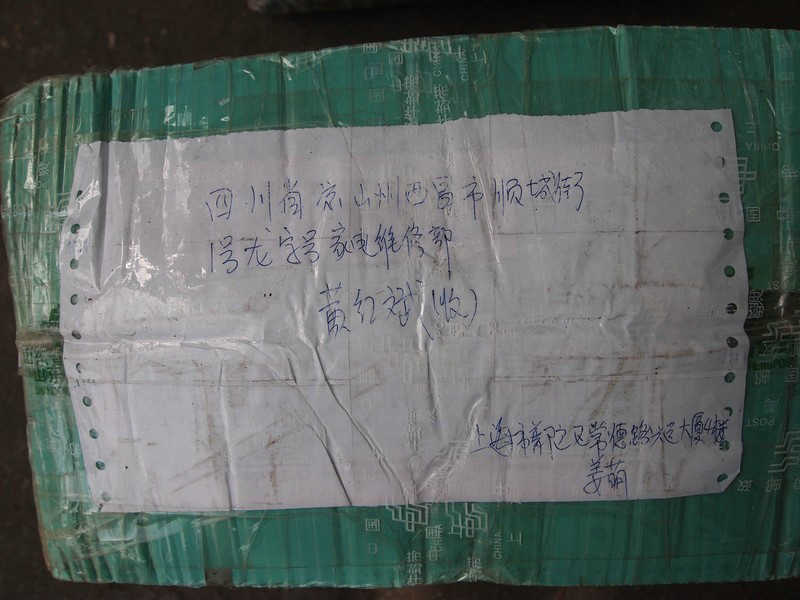 四川省凉山州西昌市顺城街
1号龙字号家电维修部
黄红斌(收)
上海市 区常德路 大厦4楼
姜萌
CHINA
POST